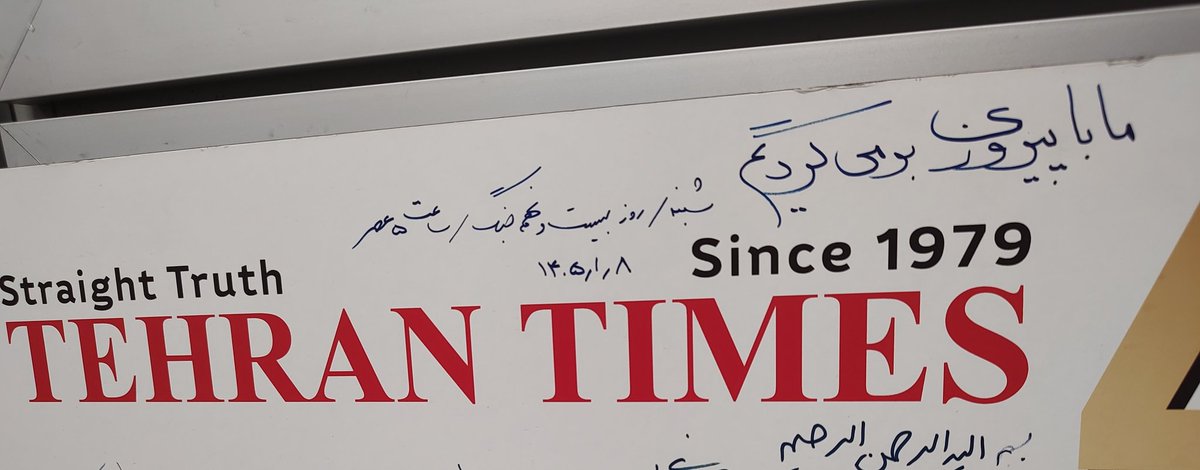 ما با پیروزی برمی گردیم
شنبه / روز بیست و نهم جنگ / ساعت ۵ عصر
۱۴۰۵/۱/۸
Since 1979
Straight Truth
TEHRAN TIMES
بسم الله الرحمن الرحیم